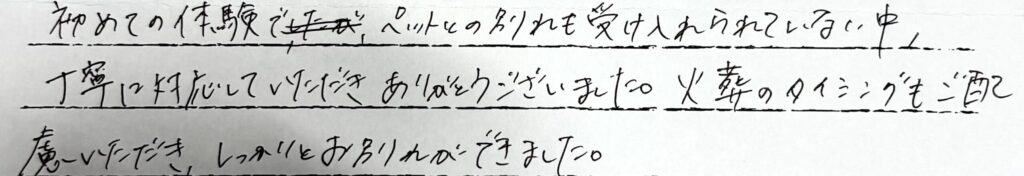 初めての体験で、ペットとの別れも受け入れられていない中、
丁寧に対応していただきありがとうございました。火葬のタイミングもご配
慮いただき、しっかりとお別れができました。